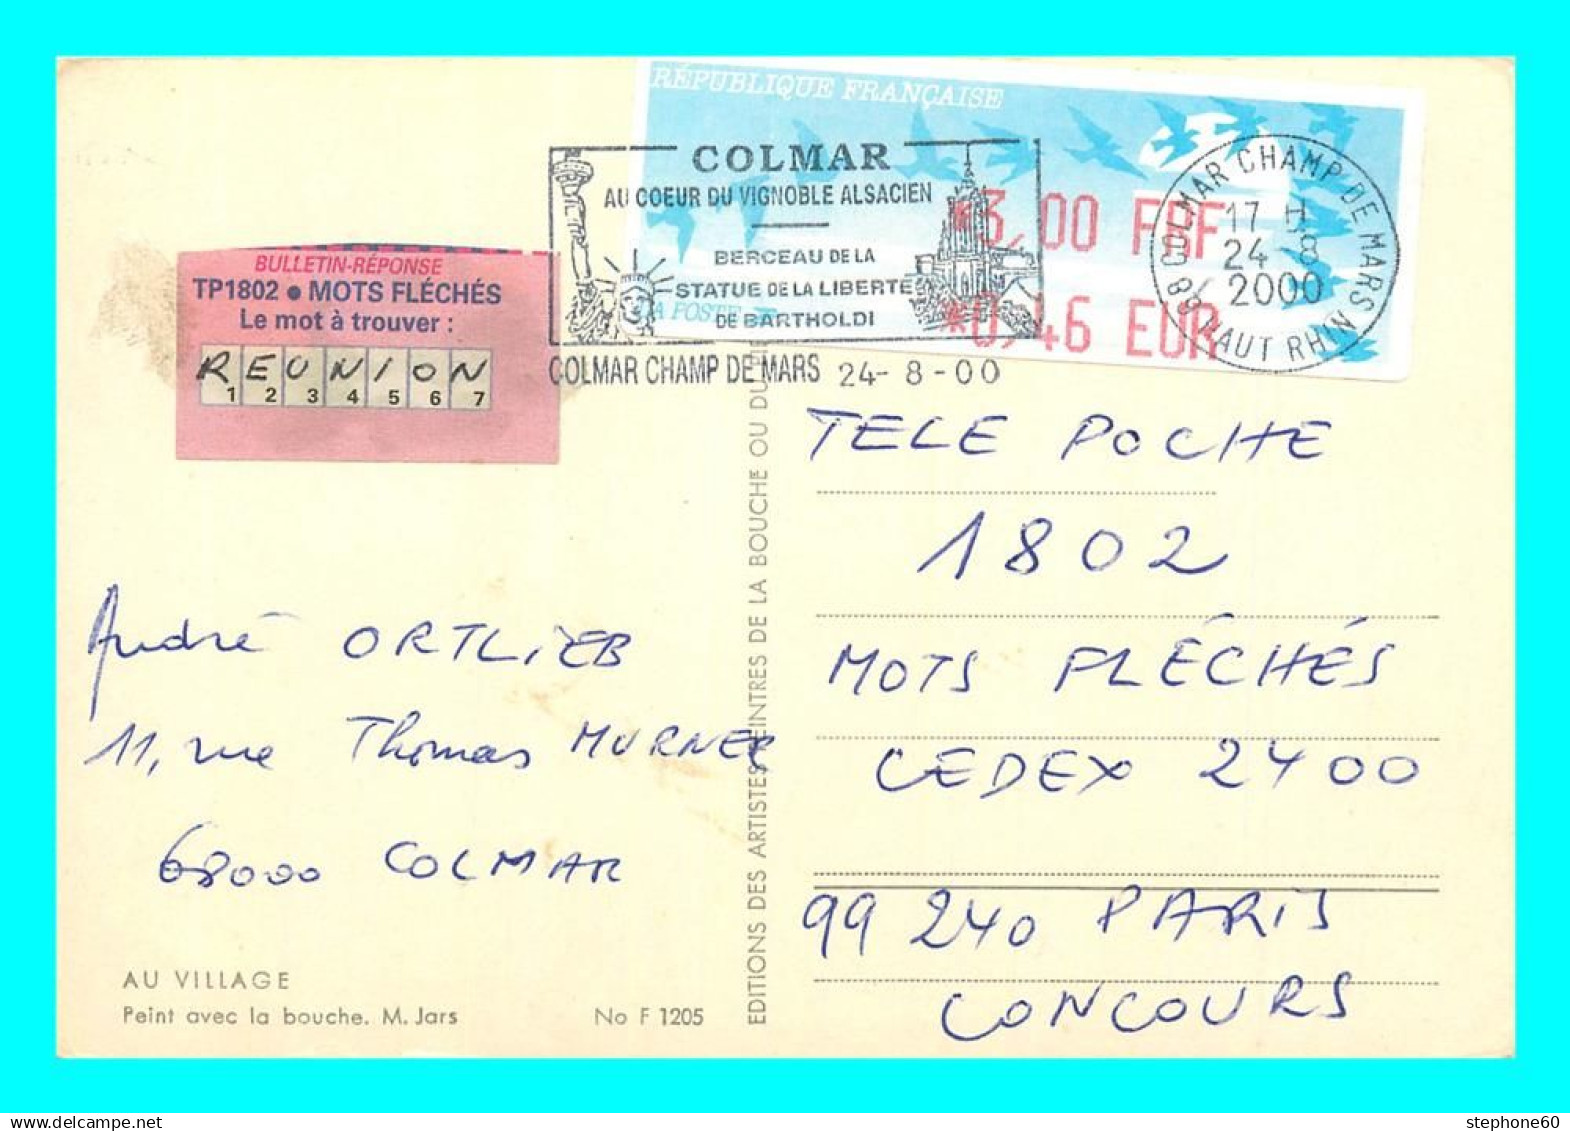 RÉPUBLIQUE FRANÇAISE
COLMAR
AU COEUR DU VIGNOBLE ALSACIEN
BERCEAU DE LA
STATUE DE LA LIBERTE
DE BARTHOLDI
COLMAR CHAMP DE MARS 24-8-00
*3,00 FRF
*0,46 EUR
LA POSTE
COLMAR CHAMP DE MARS
17 H
24 8
2000
68 HAUT RHIN
BULLETIN-RÉPONSE
TP1802 ● MOTS FLÉCHÉS
Le mot à trouver :
REUNION
1 2 3 4 5 6 7
TELE POCHE
1802
MOTS FLÉCHÉS
CEDEX 2400
99 240 PARIS
CONCOURS
André ORTLIEB
11, rue Thomas MURNER
68000 COLMAR
AU VILLAGE
Peint avec la bouche. M. Jars
No F 1205
EDITIONS DES ARTISTES PEINTRES DE LA BOUCHE OU DU PIED
stephone60